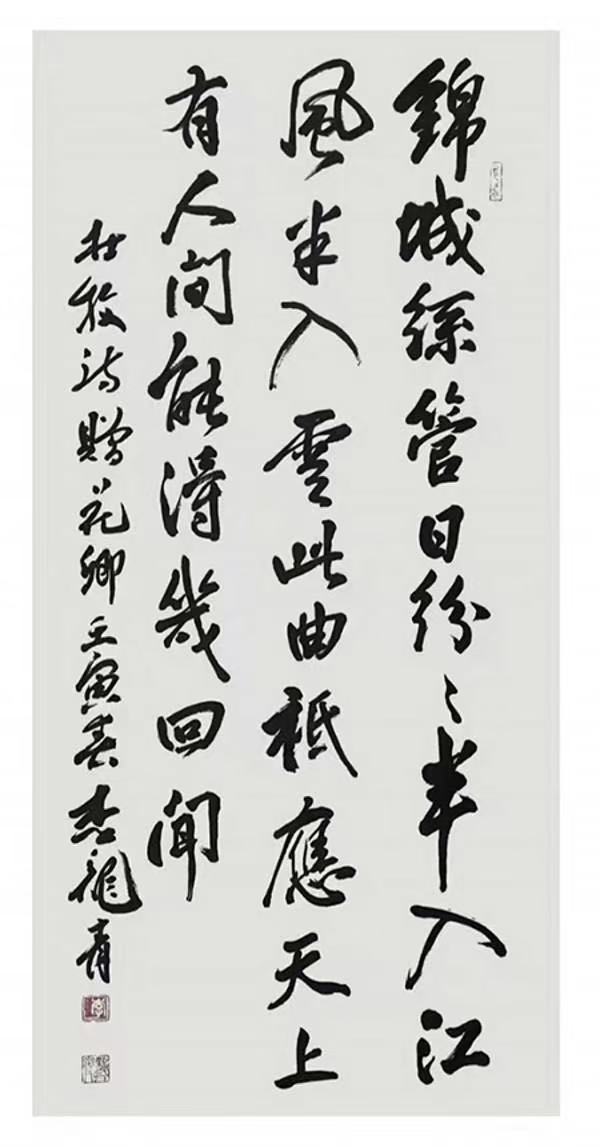 錦城絲管日紛〻半入江
風半入雲此曲祗應天上
有人間能得幾回聞
杜牧詩贈花卿壬寅春李龍青